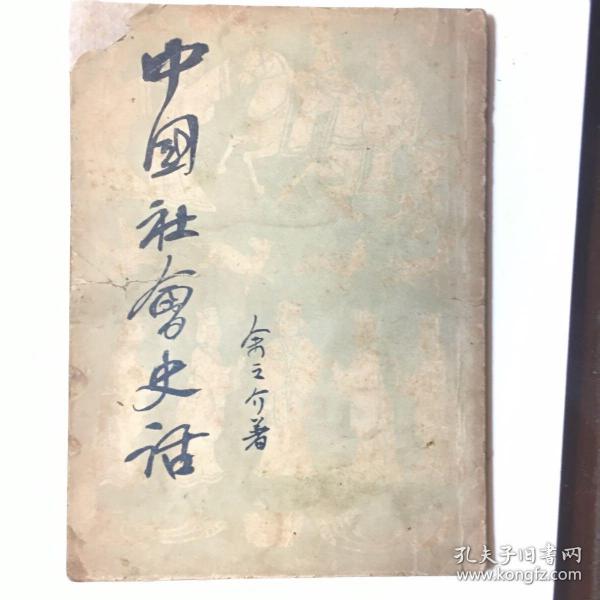 中國社會史话
余之介著
孔夫子旧书网
www.kongfz.com